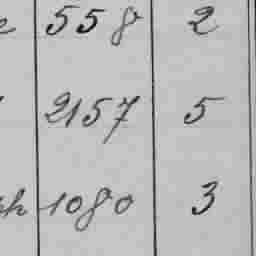 558 2
2157 5
1080 3